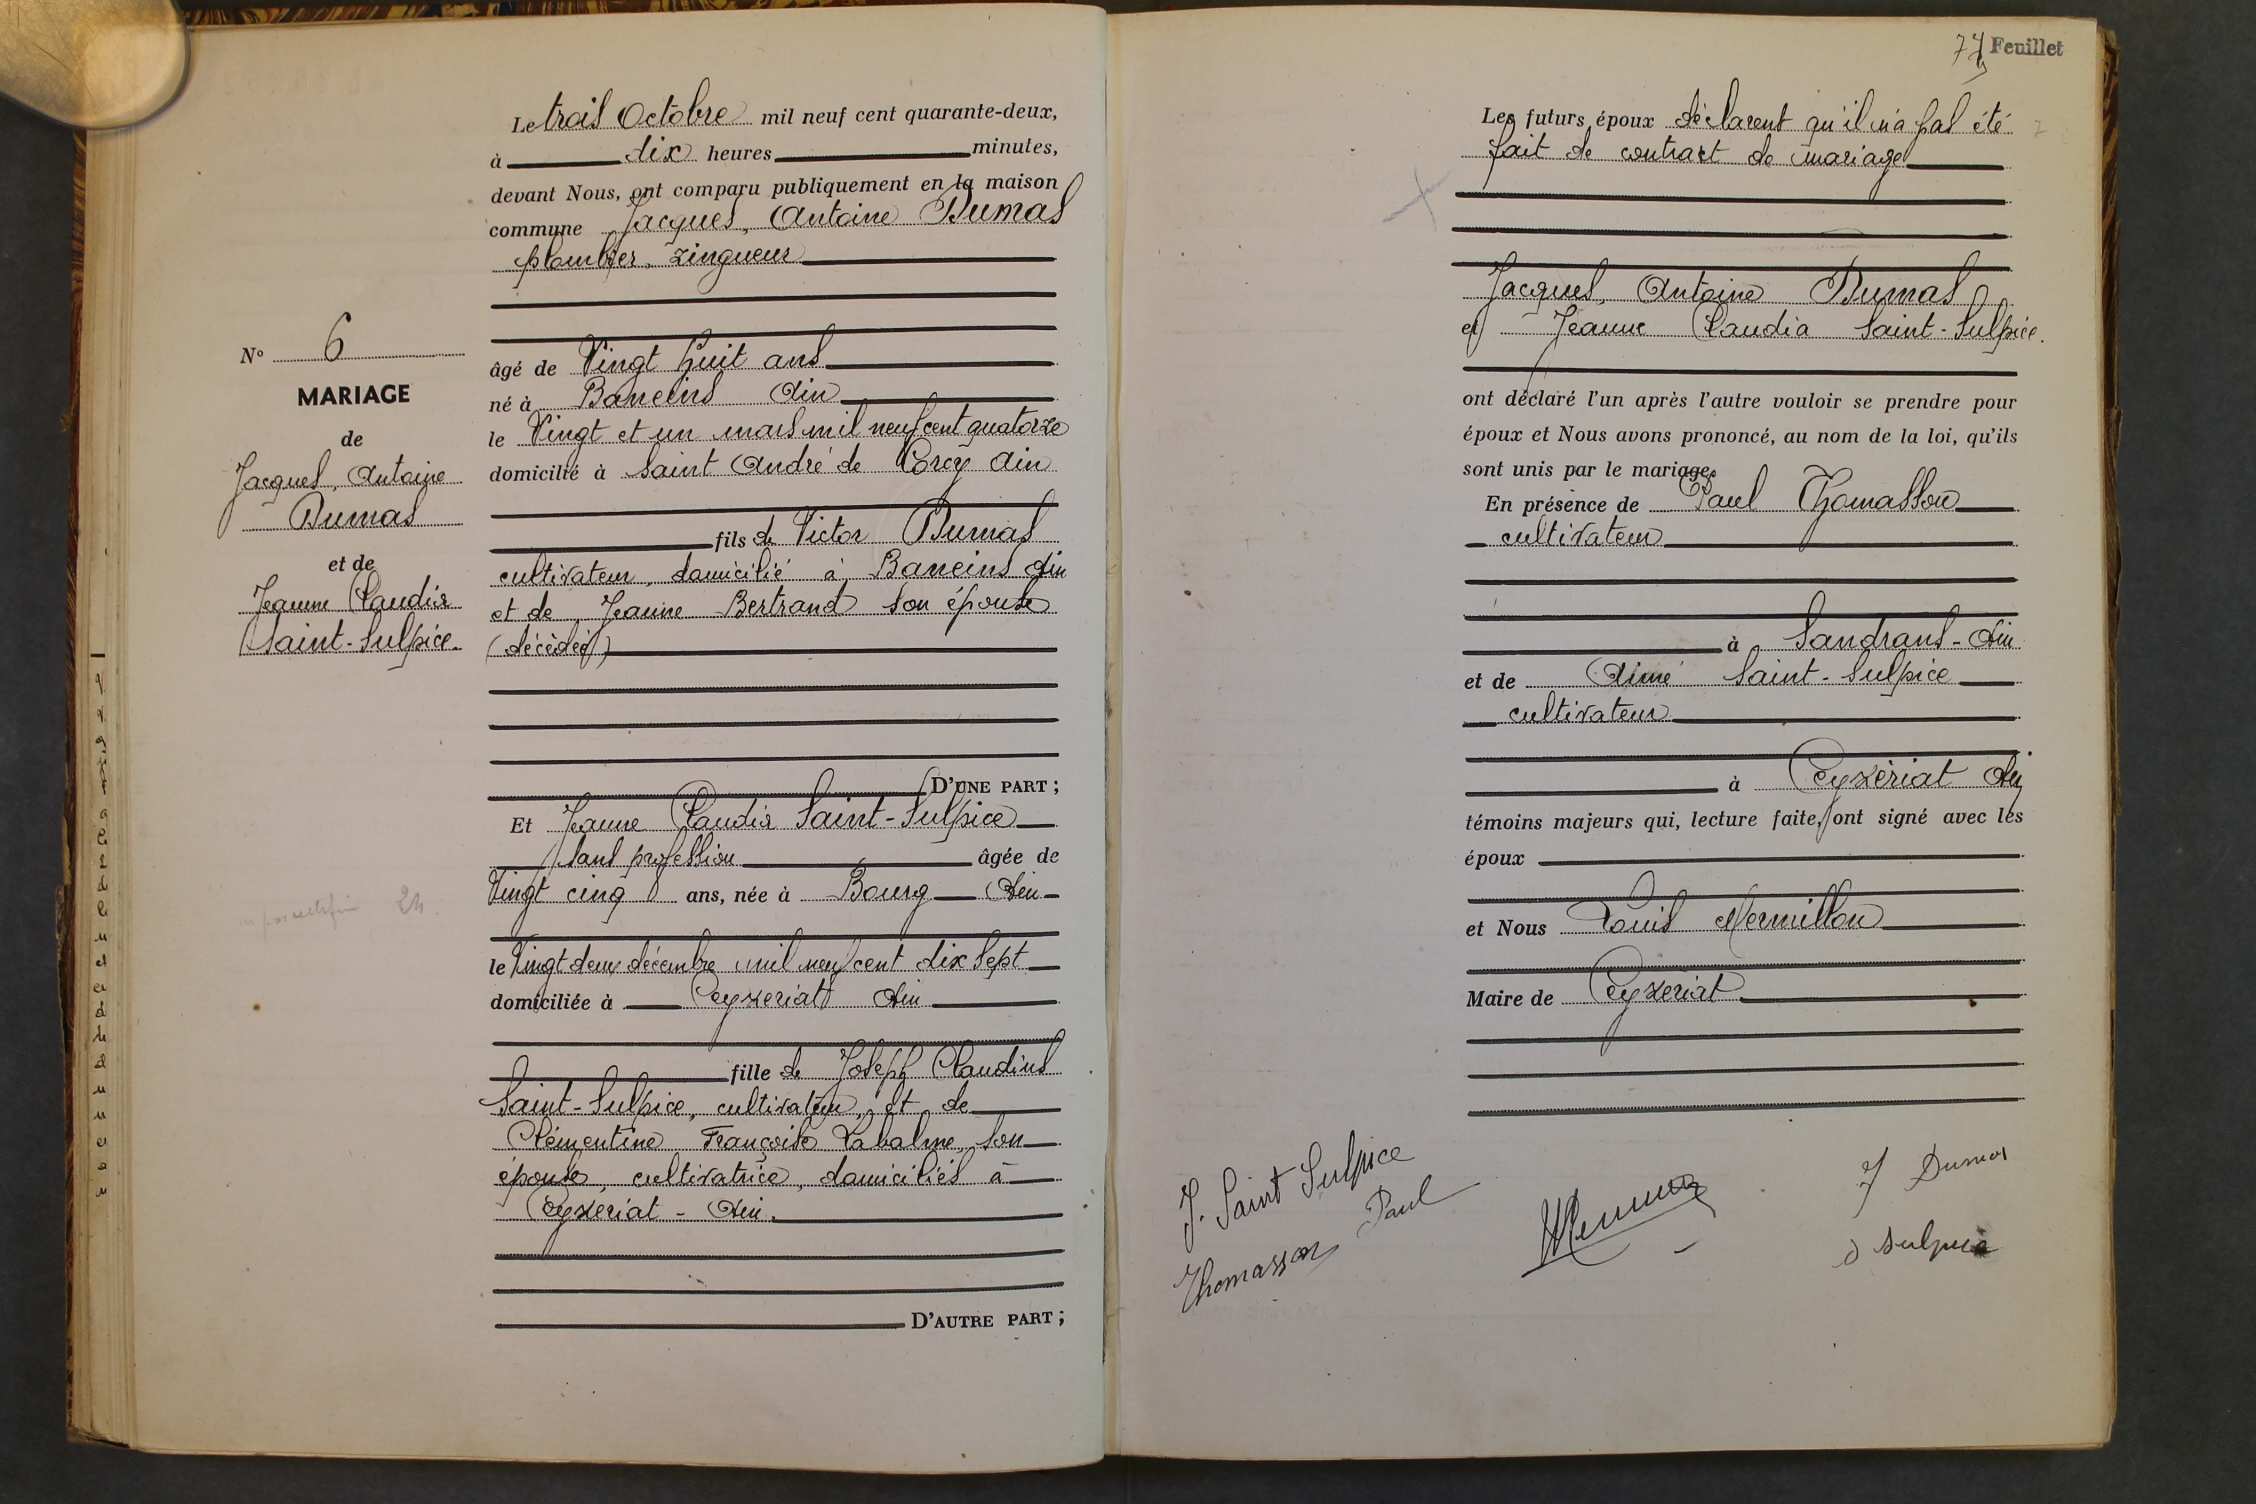 Le trois Octobre mil neuf cent quarante-deux,
à dix heures minutes,
devant Nous, ont comparu publiquement en la maison
commune Jacques, Antoine Dumas
plombier, zingueur
N° 6
MARIAGE
de
Jacques, Antoine
Dumas
et de
Jeanne Claudia
Saint-Sulpice.
âgé de Vingt huit ans
né à Baneins Ain
le Vingt et un mars mil neuf cent quatorze
domicilié à Saint André de Corcy Ain
fils de Victor Dumas
cultivateur, domicilié à Baneins Ain
et de Jeanne Bertrand son épouse
(décédée)
D'UNE PART ;
Et Jeanne Claudia Saint-Sulpice
sans profession âgée de
Vingt cinq ans, née à Bourg Ain
le Vingt deux décembre mil neuf cent dix sept
domiciliée à Ceyzeriat Ain
24.
fille de Joseph Claudius
Saint-Sulpice, cultivateur, et de
Clémentine Françoise Labalme, son
épouse, cultivatrice, domiciliés à
Ceyzeriat - Ain.
D'AUTRE PART ;
Feuillet
Les futurs époux déclarent qu'il n'a pas été
fait de contract de mariage
Jacques, Antoine Dumas
et Jeanne Claudia Saint-Sulpice.
ont déclaré l'un après l'autre vouloir se prendre pour
époux et Nous avons prononcé, au nom de la loi, qu'ils
sont unis par le mariage.
En présence de Paul Thomasson
cultivateur
à Sandrans - Ain
et de Aimé Saint-Sulpice
cultivateur
à Ceyzériat Ain
témoins majeurs qui, lecture faite, ont signé avec les
époux
et Nous Louis Mermillon
Maire de Ceyzeriat
J. Saint Sulpice
J Dumas
Thomasson Paul
Sulpice